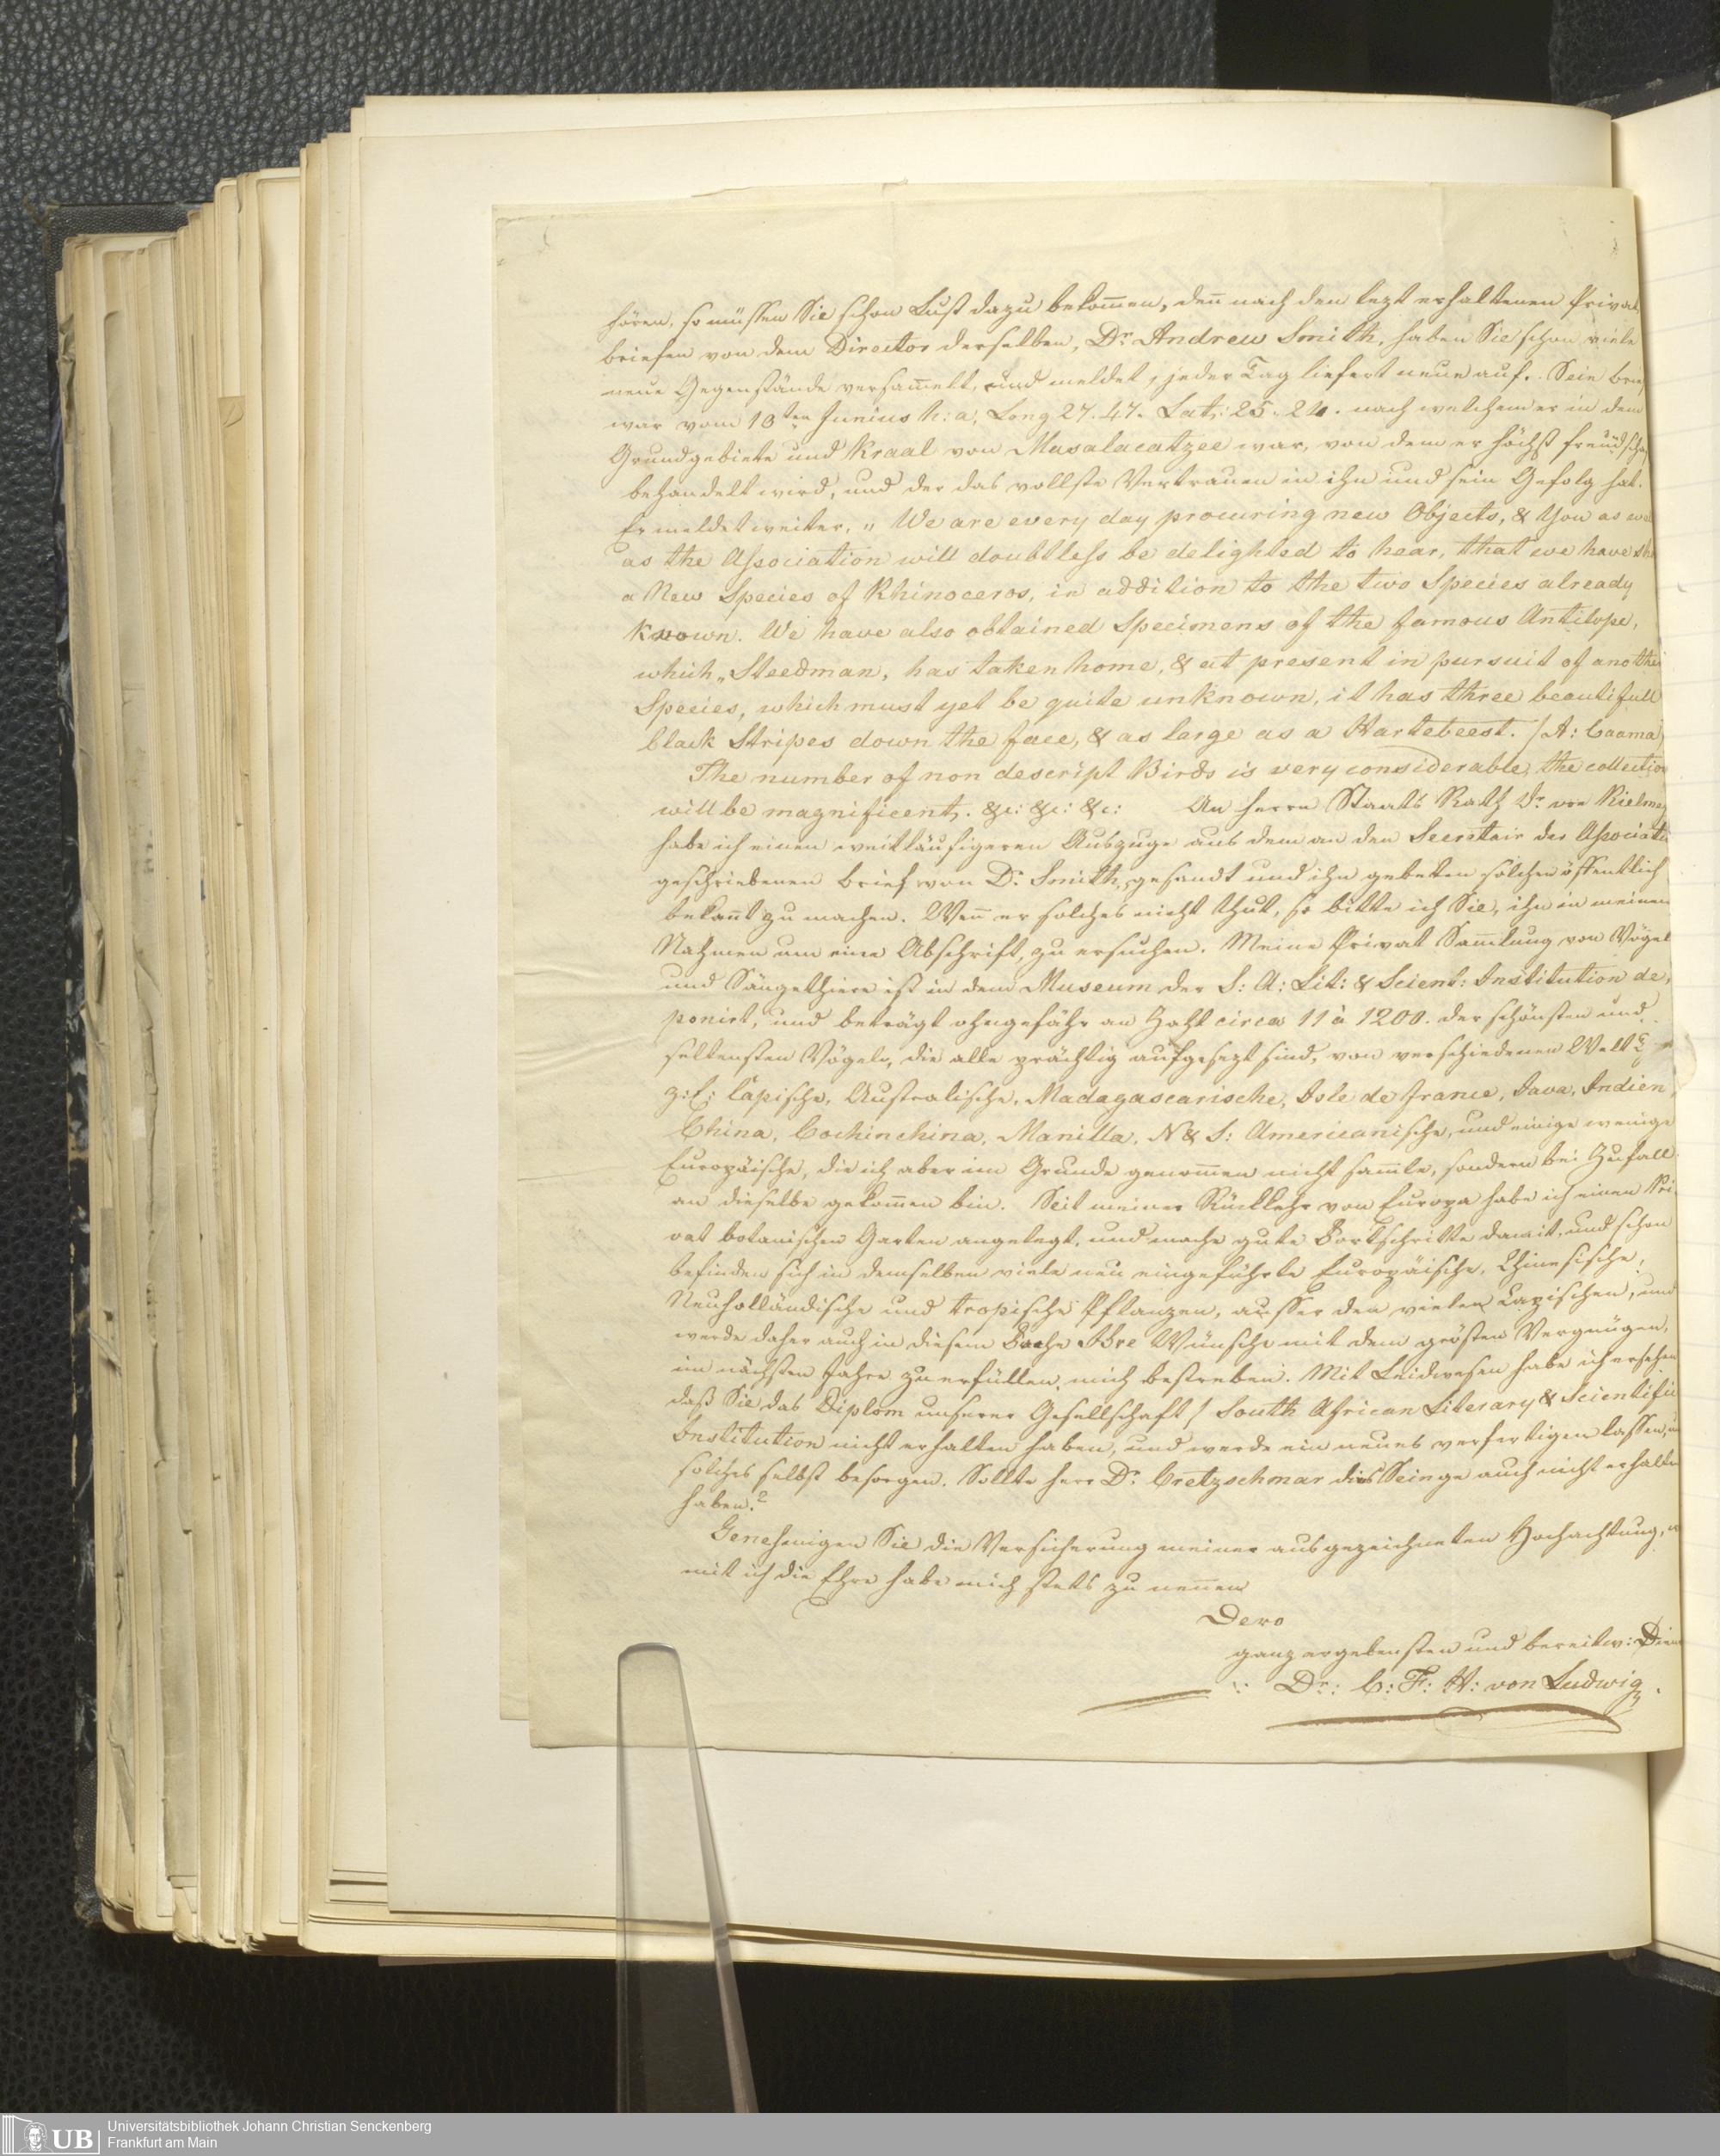 hören, so müssen Sie schon Lust dazu bekom̄en, deñ nach den lezt erhaltenen Privat
briefen von dem Director derselben, Dr. Andrew Smith, haben Sie schon viele
neue Gegenstände versam̄elt, und meldet, jeder Tag liefert neue auf. Sein brief
war vom 18ten Junius h: a, Long 27. 47. Lat: 25. 24. nach welchem er in dem
Grundgebiete und Kraal von Masalacatzee war, von dem er höchst freundscha
behandelt wird, und der das vollste Vertrauen in ihn und sein Gefolg hat.
Er meldet weiter, „ We are every day procuring new Objects, & You as well
as the Association will doubtless be delighted to hear, that we have sh
a New Species of Rhinoceros, in addition to the two Species already
known. We have also obtained Specimens of the famous Antilope,
which „ Steedman, has taken home, & at present in pursuit of another
Species, which must yet be quite unknown, it has three beautifull
black Stripes down the face, & as large as a Hartebeest. / A: Caama)
The number of non descript Birds is very considerable, the collection
will be magnificent. &c: &c: &c: An Herrn Staats Rath Dr. von Kielmey
habe ich einen weitläufigeren Auszuge aus dem an den Secretair der Associatio
geschriebenen brief von Dr. Smith, gesandt und ihn gebeten solchen öffentlich
bekañt zu machen. Weñ er solches nicht thut, so bitte ich Sie, ihn in meinen
Nahmen um eine Abschrift, zu ersuchen. Meine Privat Sam̄lung von Vögel
und Säugethiere ist in dem Museum der S: A: Lit: & Scient: Institution de,
ponirt, und beträgt ohngefähr an Zahl circa 11 à 1200. der schönsten und
seltensten Vögeln, die alle prächtig aufgesezt sind, von verschiedenen Welt
z: E: Capische, Australische, Madagascarische, Isle de france, Java, Indien,
China, Cochinchina, Manilla, N & S: Americanische, und einige wenige
Europäische, die ich aber im Grunde genom̄en nicht sam̄le, sondern bei Zufall
an dieselbe gekom̄en bin. Seit meiner Rückkehr von Europa habe ich einen Pri
vat botanischen Garten angelegt, und mache gute Fortschritte damit, und schon
befinden sich in demselben viele neu eingeführte Europäische, Chinesische,
Neuholländische und tropische Pflanzen, ausser den vielen Capischen, und
werde daher auch in diesem Fache Ihre Wünsche mit dem grösten Vergnügen,
im nächsten Jahre zu erfüllen, mich bestreben. Mit Leidwesen habe ich ersehen
daß Sie das Diplom unserer Gesellschaft / South African Literary & Scientific
Institution nicht erhalten haben, und werde ein neues verfertigen lassen, u
solches selbst besorgen. Sollte Herr Dr. Cretzschmar das Seinge auch nicht erhalten
haben.?
Genehmigen Sie die Versicherung meiner ausgezeichneten Hochachtung, w
mit ich die Ehre habe mich stets zu neñen
Dero
ganz ergebensten und bereitw: Dien
Dr: C: F: H: von Ludwig.
UB
Universitätsbibliothek Johann Christian Senckenberg
Frankfurt am Main